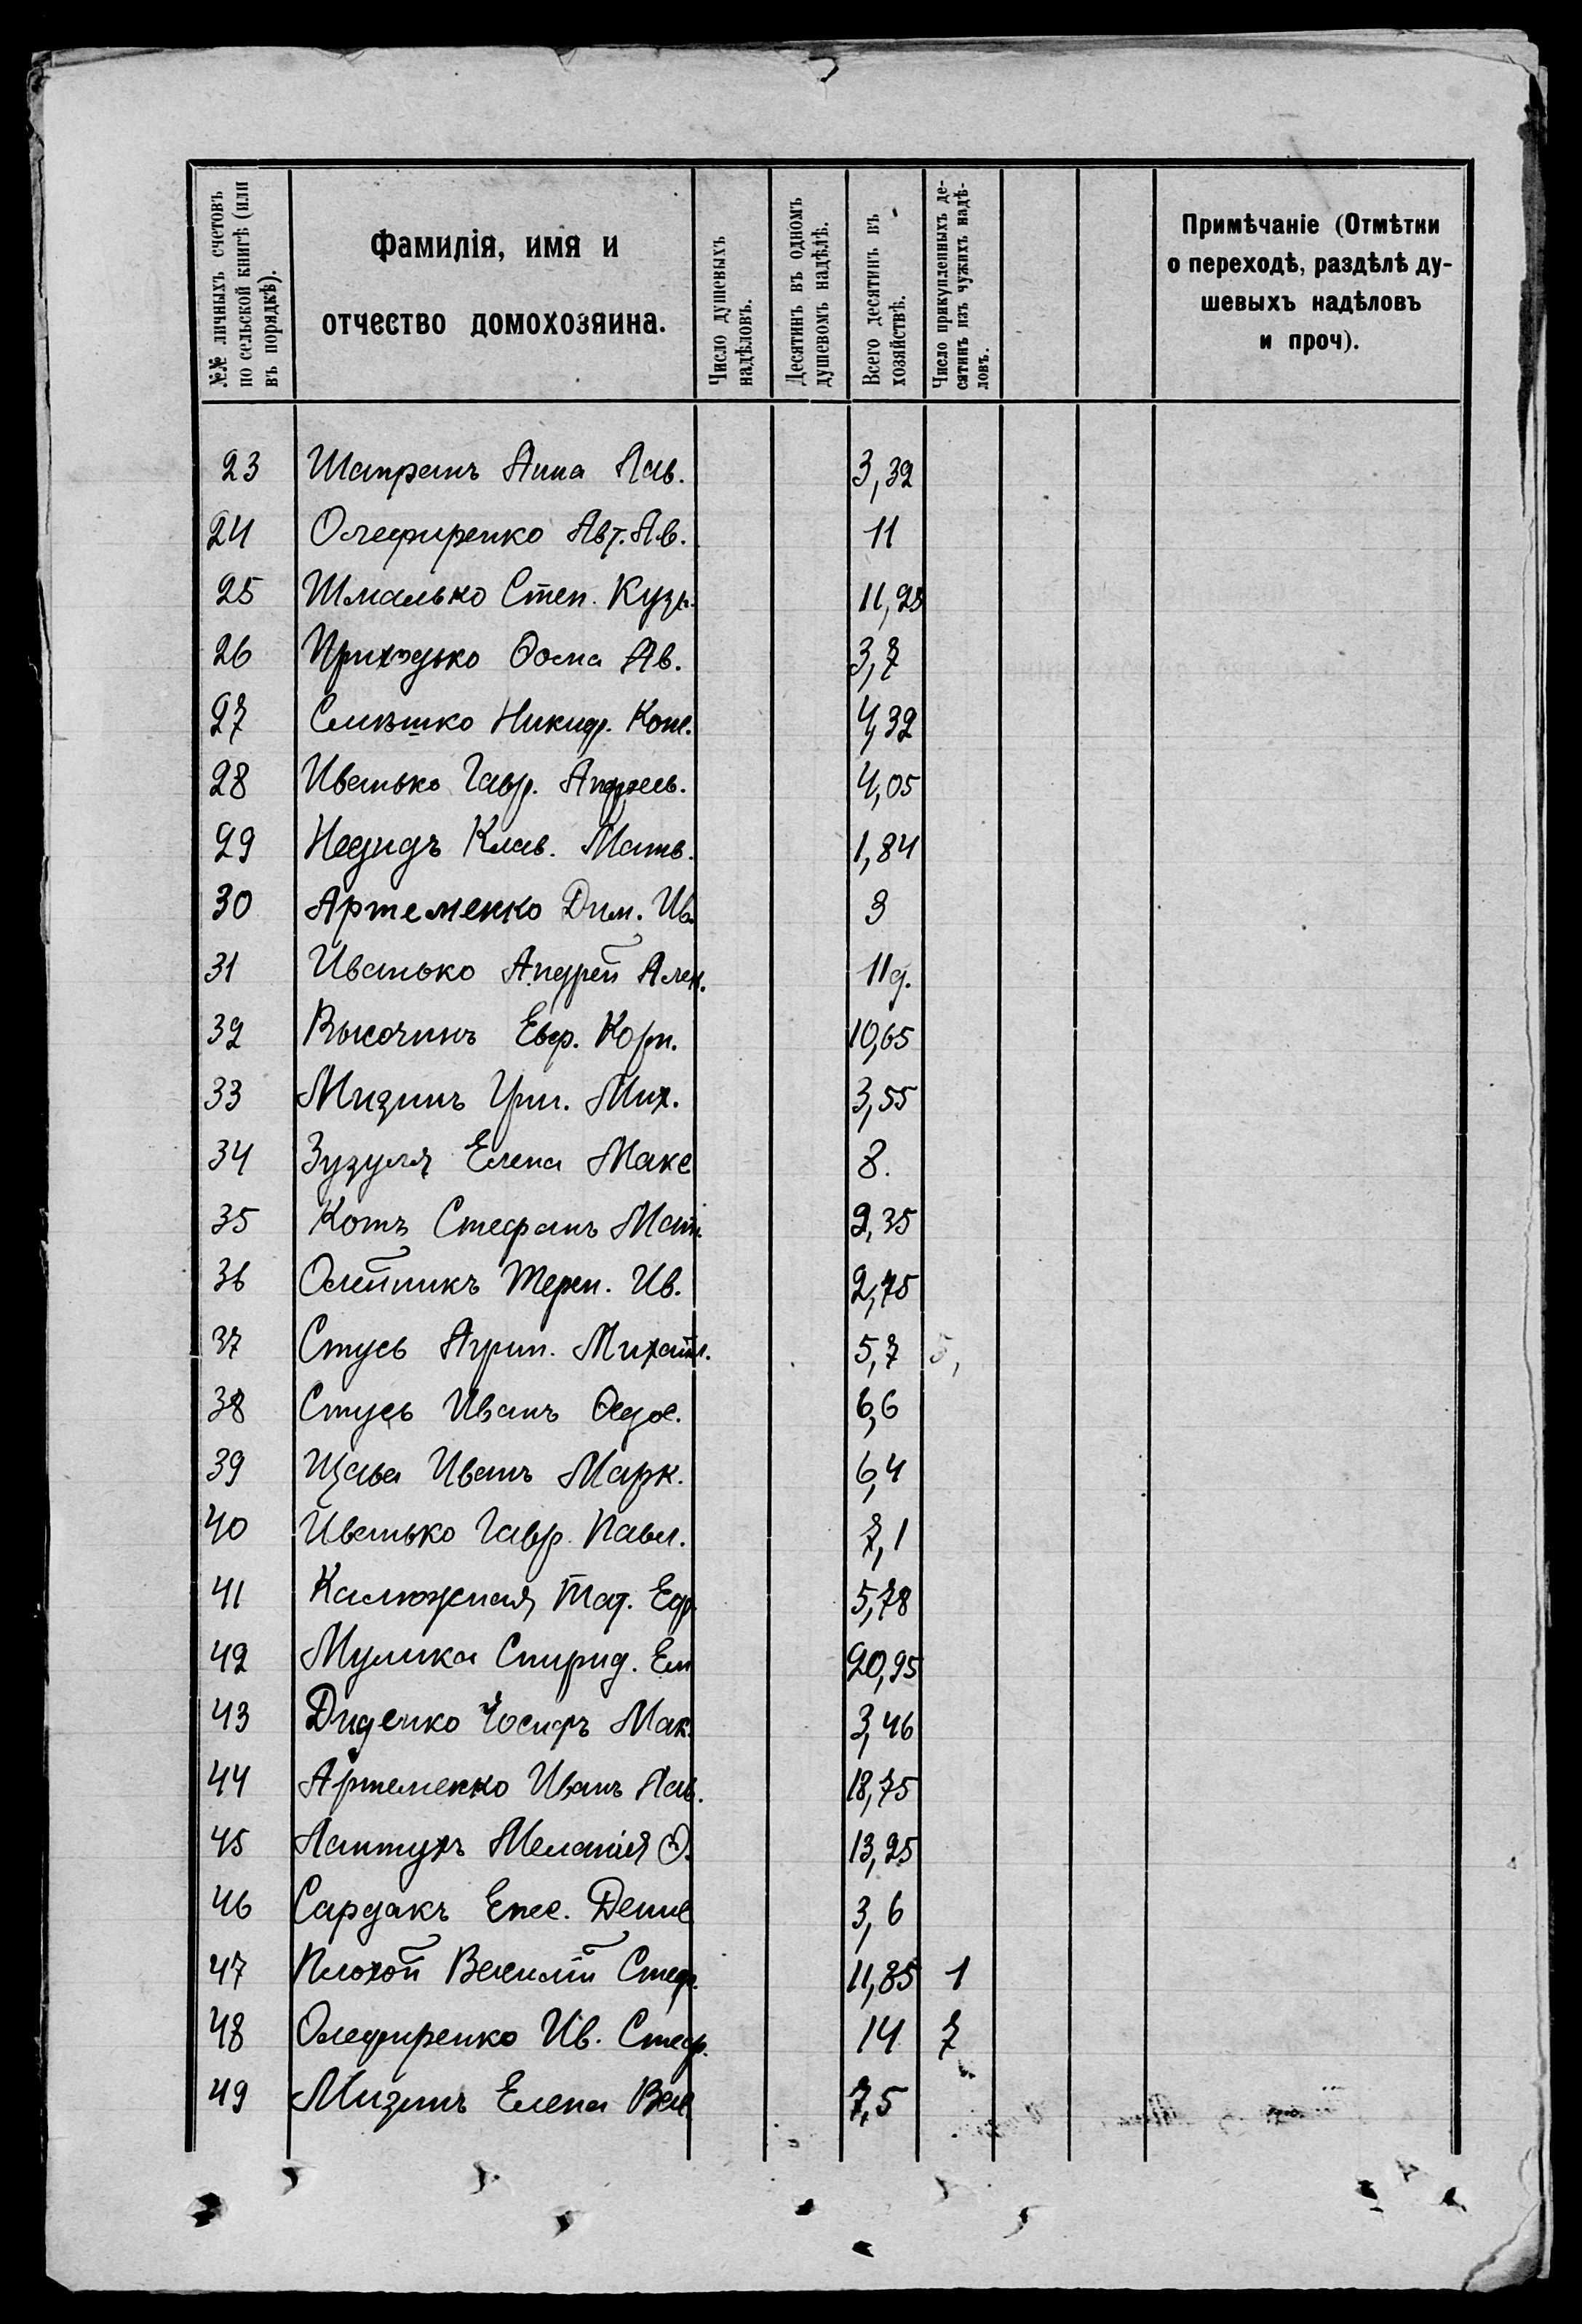 №№ личныхъ счетовъ
по сельской книгѣ (или
въ порядкѣ).
Фамилія, имя и
отчество домохозяина.
Число душевыхъ
надѣловъ.
Десятинъ въ одномъ
душевомъ надѣлѣ.
Всего десятинъ въ
хозяйствѣ.
Число прикупленныхъ де-
сятинъ изъ чужихъ надѣ-
ловъ.
Примѣчаніе (Отмѣтки
о переходѣ, раздѣлѣ ду-
шевыхъ надѣловъ
и проч).
23 Шапранъ Анна Пав. 3,32
24 Олефиренко Авт. Ав. 11
25 Шмалько Степ. Кузь. 11,25
26 Приходько Ѳома Ав. 3,7
27 Никиф. 4,32
28 Иванько Гавр. Андреев. 4,05
29 Недидъ Клав. Матв. 1,84
30 Артеменко Дим. Ив. 3
31 Иванько Андрей Алек. 11д.
32 Высочинъ Евф. Корн. 10,65
33 Мизинъ Мих. 3,55
34 Зузуля Елена Макс 8.
35 Котъ Стефанъ Матв. 2,35
36 Олейникъ Терен. Ив. 2,75
37 Стусь Агрип. Михайл. 5,7 5,
38 Стусь Иванъ Ѳедос. 6,6
39 Щава Иванъ Марк. 6,4
40 Иванько Гавр. Павл. 7,1
41 Калюжная Тат. Еф. 5,78
42 Мулика Спирид. Ем 20,95
43 Диденко Іосифъ Мак. 3,46
44 Артеменко Иванъ Пав. 18,75
45 Лантухъ Меланія Ѳ. 13,25
46 Сардакъ Денис 3,6
47 Плохой Василій Стеф. 11,85 1
48 Олефиренко Ив. Стеф. 14 7
49 Мизинъ Елена Вас 7,5